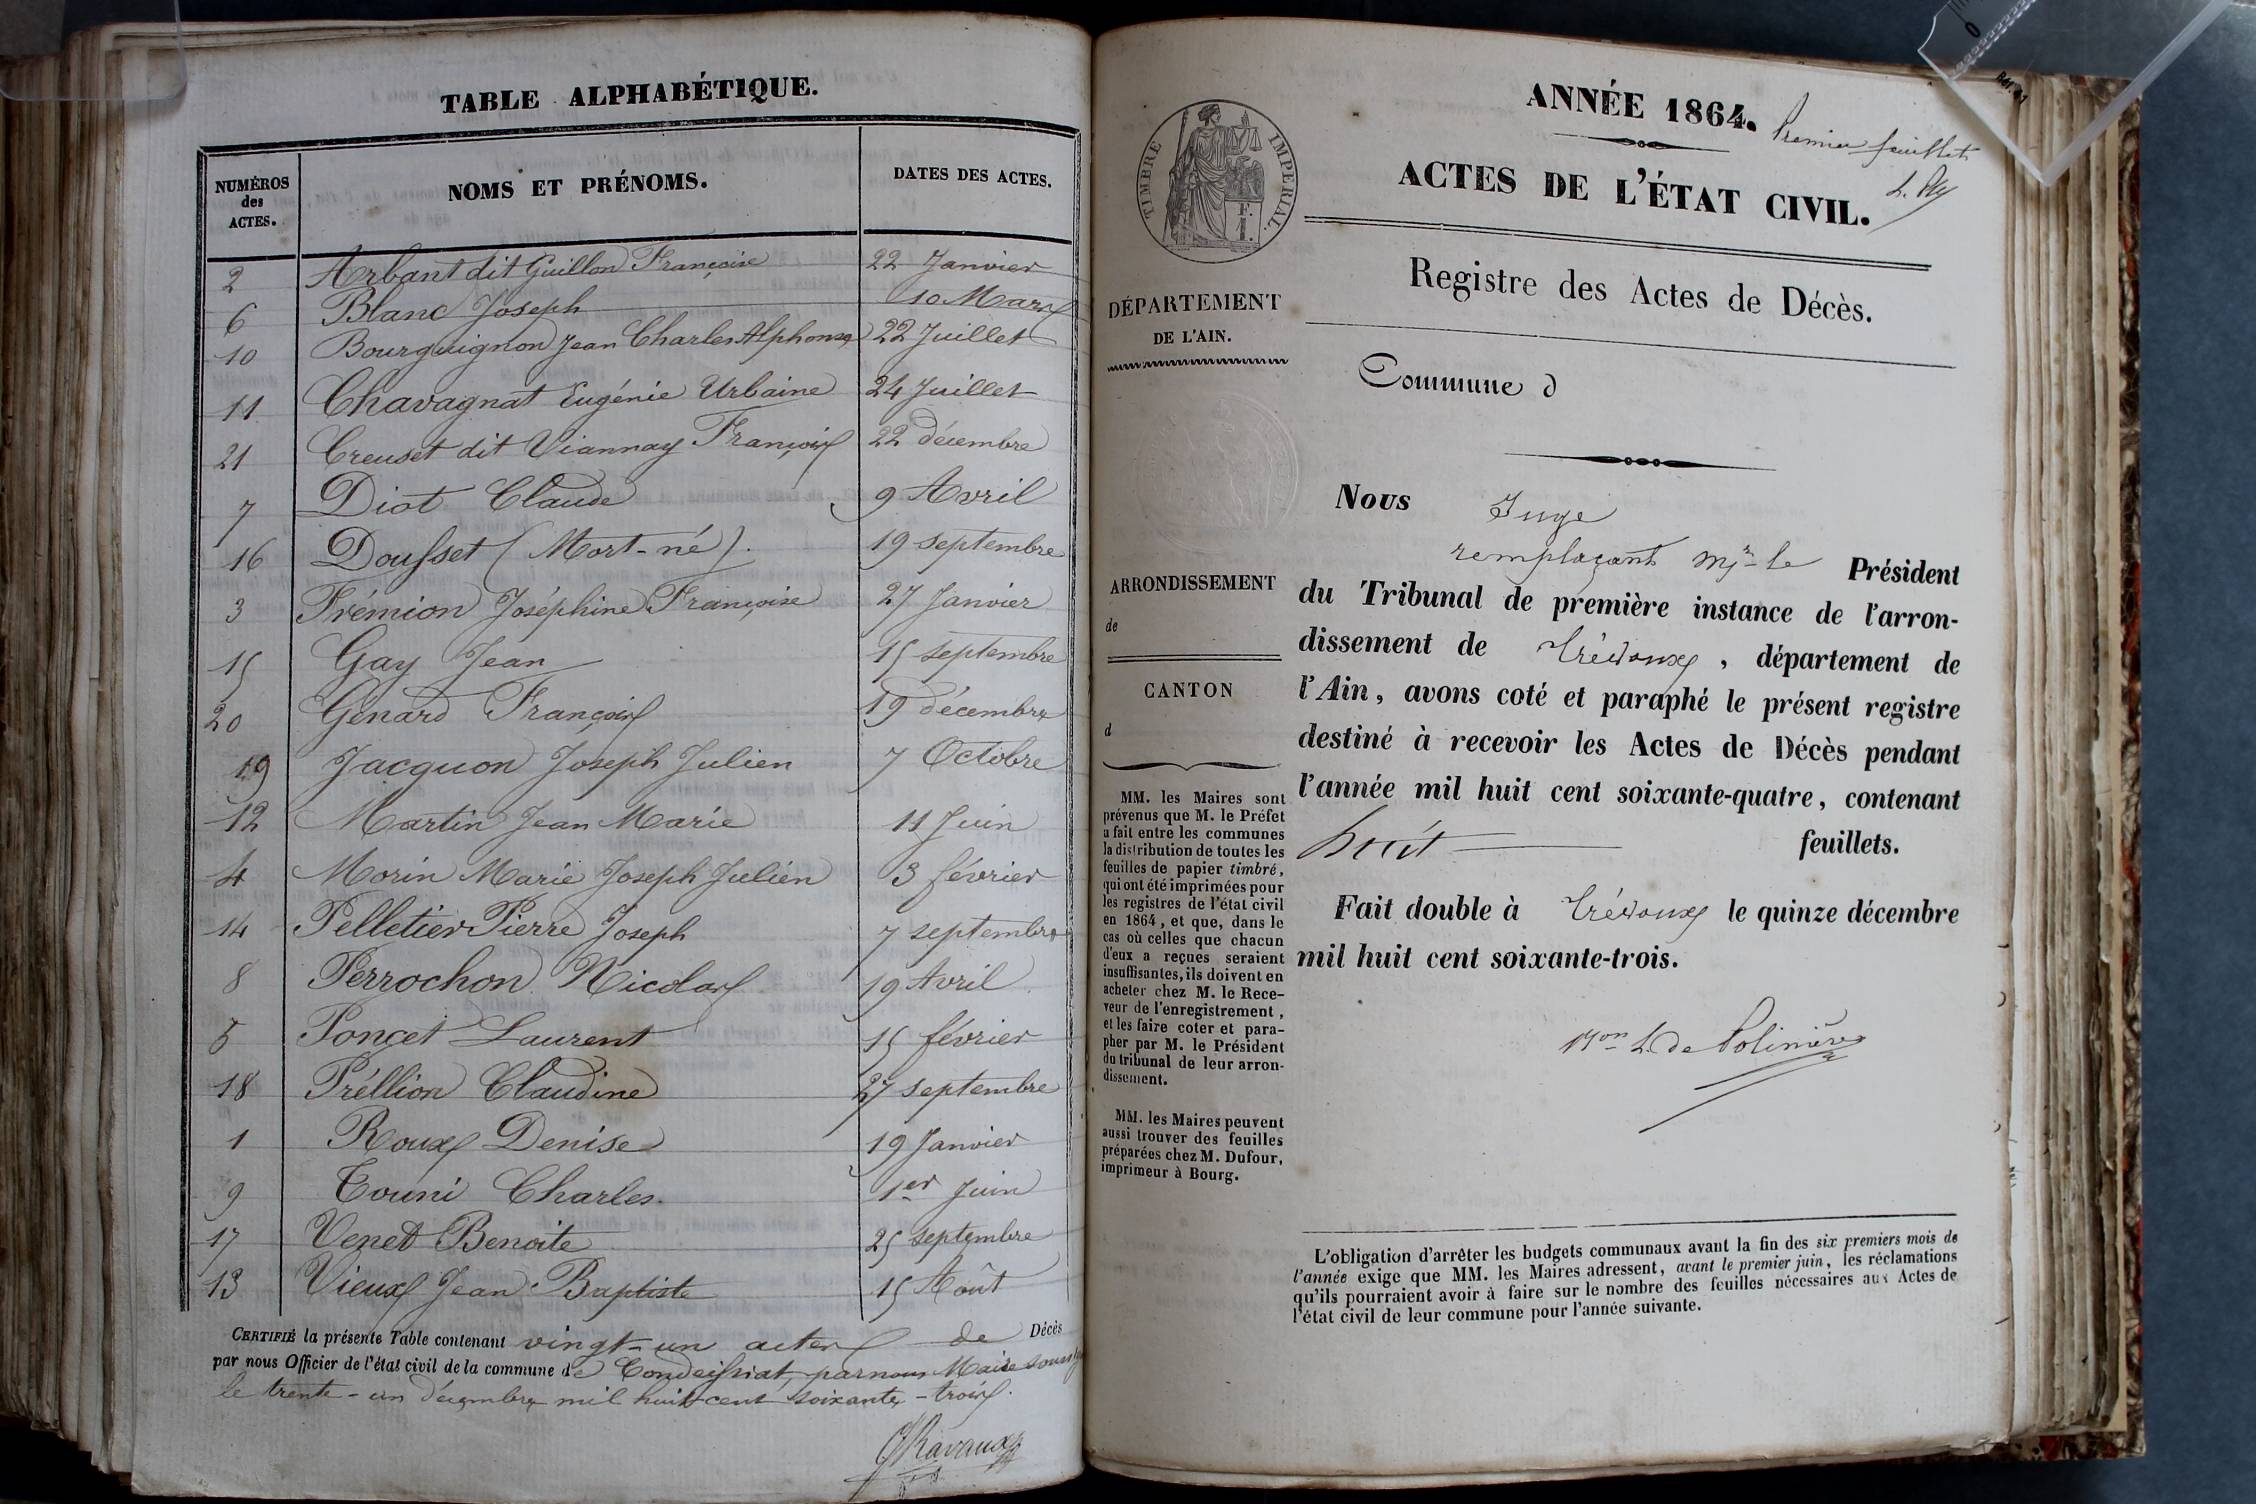 TABLE ALPHABÉTIQUE.
NUMÉROS des ACTES. NOMS ET PRÉNOMS. DATES DES ACTES.
2 Arbant dit Guillon Françoise 22 Janvier
6 Blanc Joseph 10 Mars
10 Bourguignon Jean Charles Alphonse 22 Juillet
11 Chavagnat Eugénie Urbaine 24 Juillet
21 Creuset dit Viannay François 22 décembre
7 Diot Claude 9 Avril
16 Dousset (Mort-né). 19 septembre
3 Frémion Joséphine Françoise 27 Janvier
15 Gay Jean 15 septembre
20 Génard François 19 décembre
19 Jacquon Joseph Julien 7 Octobre
12 Martin Jean Marie 11 Juin
4 Morin Marie Joseph Julien 3 février
14 Pelletier Pierre Joseph 7 septembre
8 Perrochon Nicolas 19 Avril
5 Poncet Laurent 15 février
18 Préllion Claudine 27 septembre
1 Roux Denise 19 Janvier
9 Touni Charles. 1er Juin
17 Venet Benoite 25 septembre
13 Vieux Jean Baptiste 15 Août
CERTIFIÉ la présente Table contenant vingt-un actes de Décès
par nous Officier de l'état civil de la commune de Condeissiat, par nous Maire
le trente-un décembre mil huit cent soixante-trois.
Ravaux
ANNÉE 1864.
Premier feuillet
ACTES DE L'ÉTAT CIVIL.
TIMBRE IMPÉRIAL.
Registre des Actes de Décès.
DÉPARTEMENT
DE L'AIN.
Commune d
ARRONDISSEMENT
de
CANTON
d
MM. les Maires sont
prévenus que M. le Préfet
a fait entre les communes
la distribution de toutes les
feuilles de papier timbré,
qui ont été imprimées pour
les registres de l'état civil
en 1864, et que, dans le
cas où celles que chacun
d'eux a reçues seraient
insuffisantes, ils doivent en
acheter chez M. le Rece-
veur de l'enregistrement,
et les faire coter et para-
pher par M. le Président
du tribunal de leur arron-
dissement.
MM. les Maires peuvent
aussi trouver des feuilles
préparées chez M. Dufour,
imprimeur à Bourg.
Nous Juge
remplaçant Mr le Président
du Tribunal de première instance de l'arron-
dissement de Trévoux, département de
l'Ain, avons coté et paraphé le présent registre
destiné à recevoir les Actes de Décès pendant
l'année mil huit cent soixante-quatre, contenant
huit feuillets.
Fait double à Trévoux le quinze décembre
mil huit cent soixante-trois.
Bon L. de Polinière
L'obligation d'arrêter les budgets communaux avant la fin des six premiers mois de
l'année exige que MM. les Maires adressent, avant le premier juin, les réclamations
qu'ils pourraient avoir à faire sur le nombre des feuilles nécessaires aux Actes de
l'état civil de leur commune pour l'année suivante.